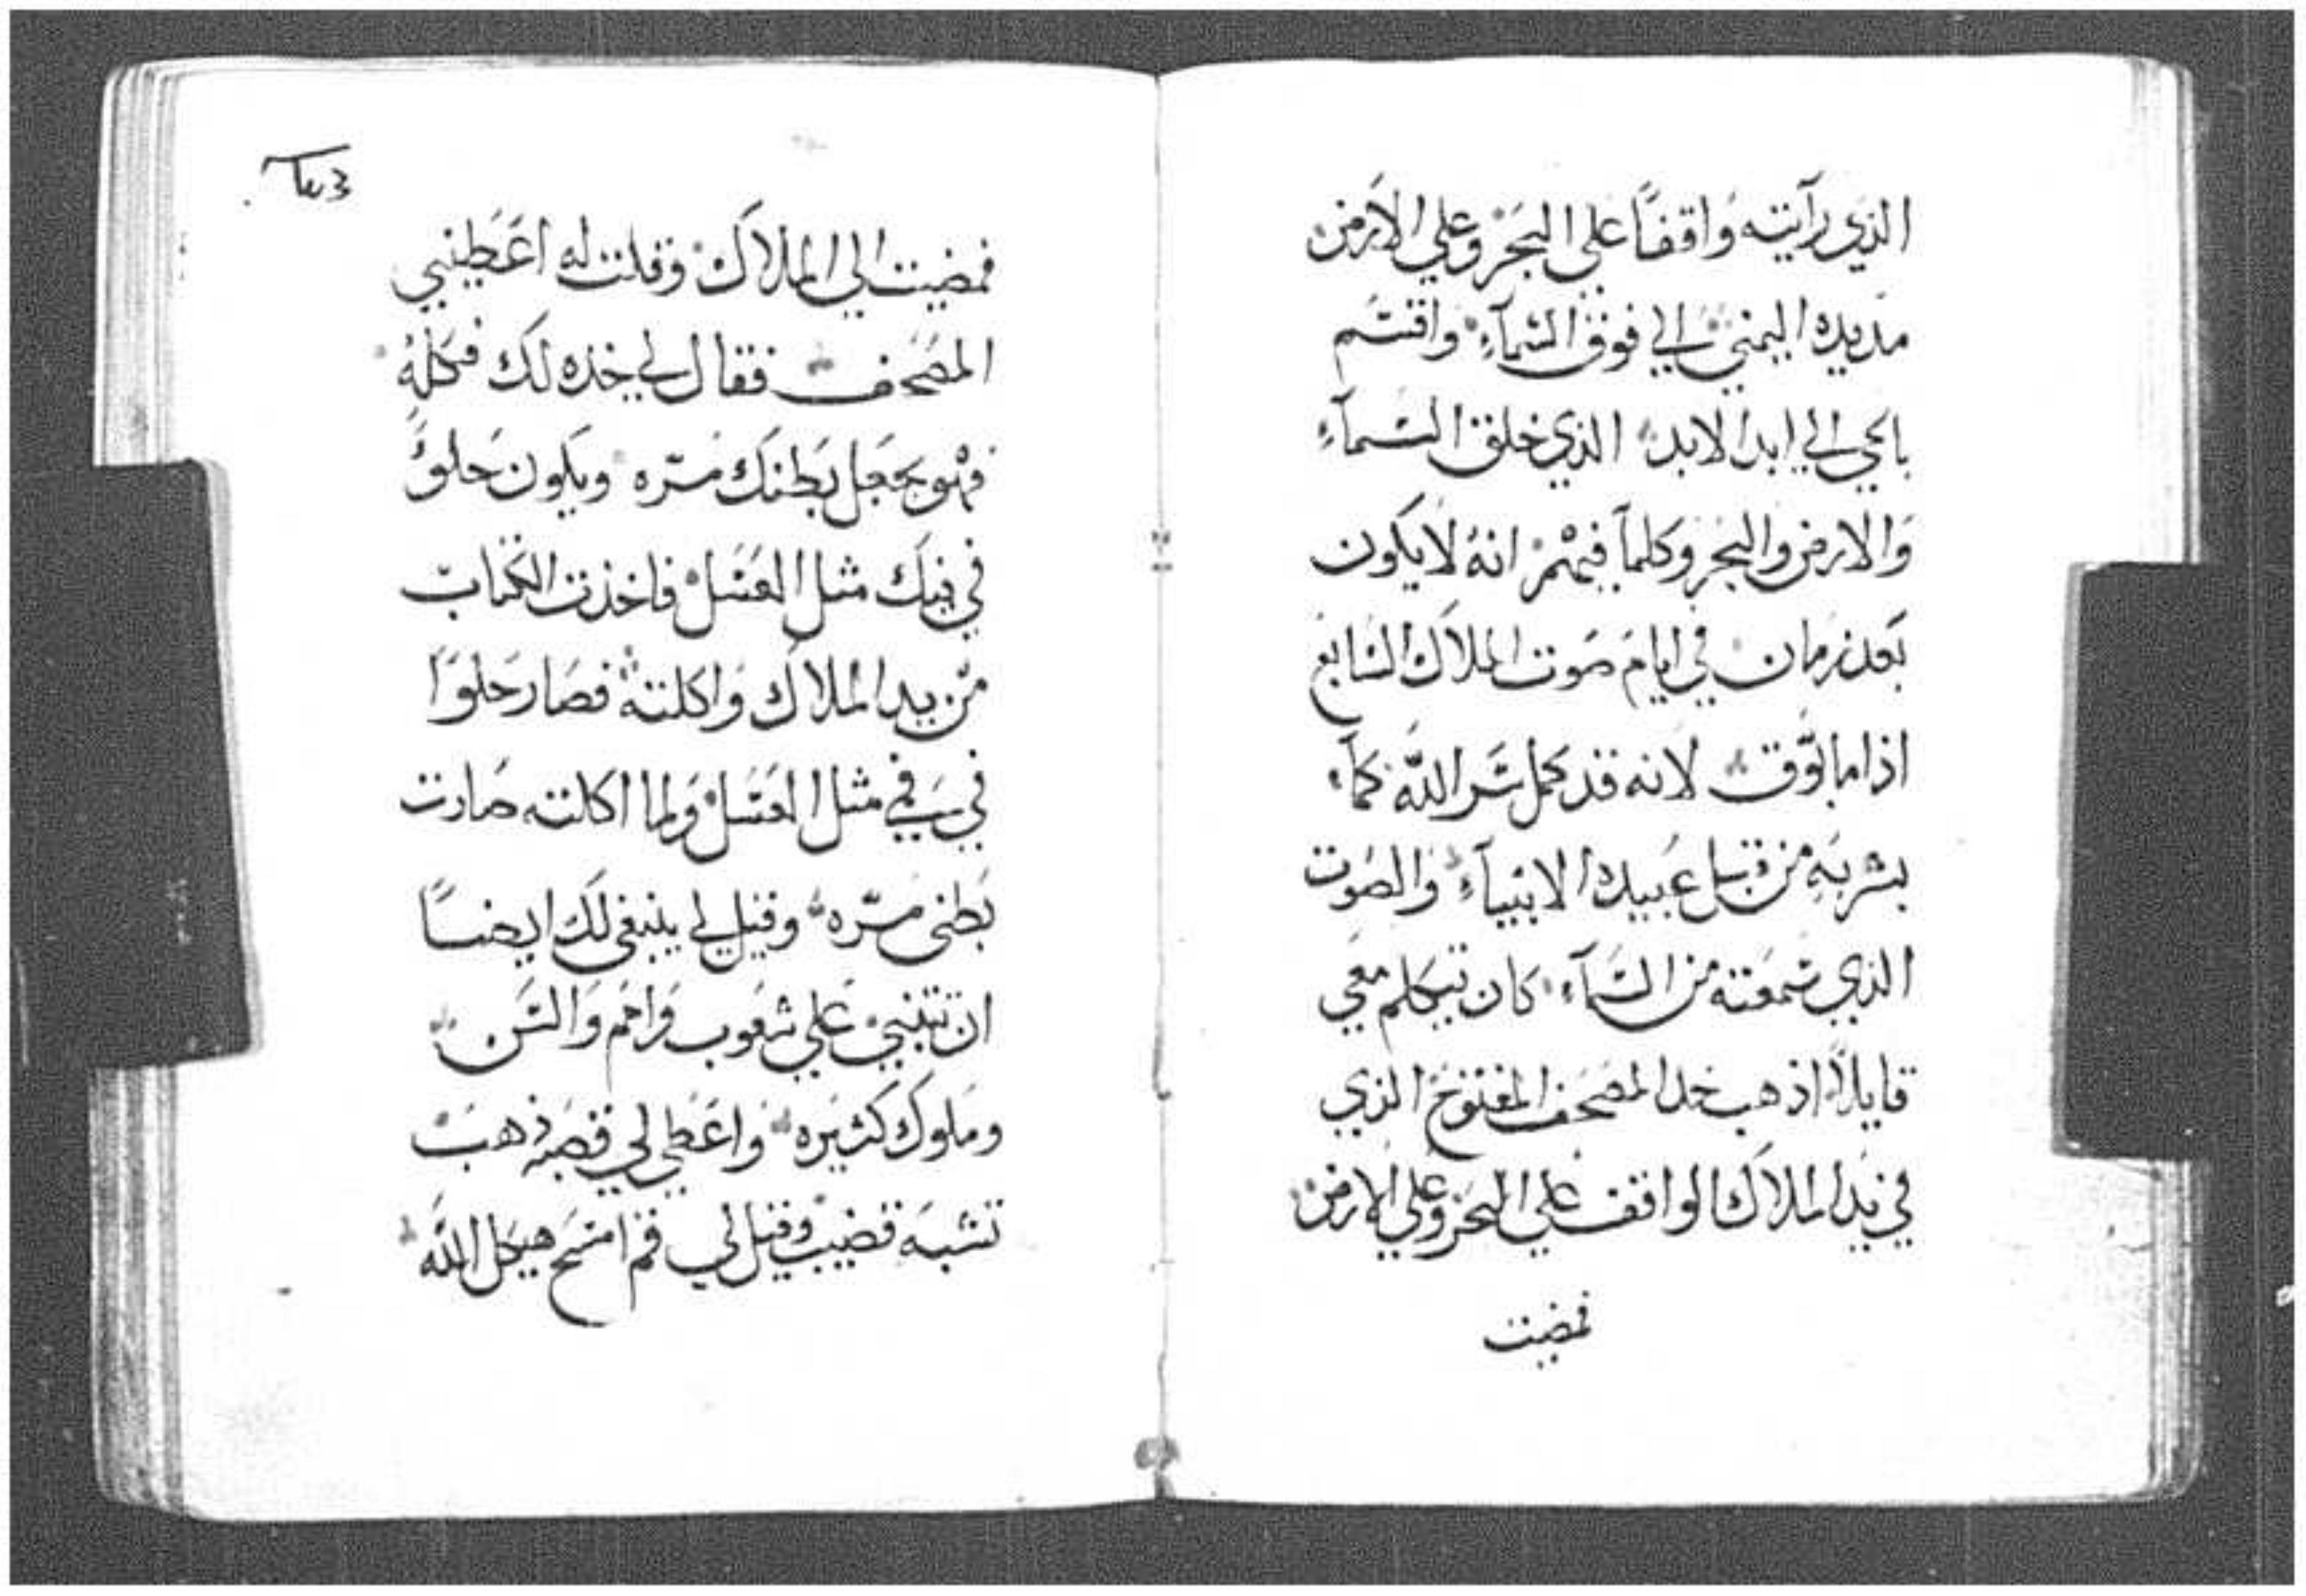 الذي رآيته واقفاً علي البحر وعلي الارض
مد يده اليمني الي فوق السمآء واقسم
بالحي الي ابد الابد الذي خلق السمآء
والارض والبحر وكلمآ فيهم انه لا يكون
بعد زمان في ايام صوت الملاك السابع
اذا ما بوّق لانه قد كمل سر اللّه كمآ
بشر به من قبل عبيده الانبيآء والصوت
الذي سمعته من السمآء كان يتكلم معي
قايلاً اذهب خد المصحف المفتوح الذي
في يد الملاك الواقف علي البحر وعلي الارض
فمضيت
فمضيت الي الملاك وقلت له اعطيني
المصحف فقال لي خذه لك فكله
فهو يجعل بطنك مرّه ويكون حلوً
في فيك مثل العسل فاخذت الكتاب
من يد الملاك واكلته فصار حلوًا
في فمي مثل العسل ولما اكلته صارت
بطني مرّه وقيل لي ينبغي لك ايضاً
ان تتنبي علي شعوب وامم والسن
وملوك كثيره واعطي لي قصبة ذهب
تشبه قضيب وقيل لي قم امسح هيكل اللّه